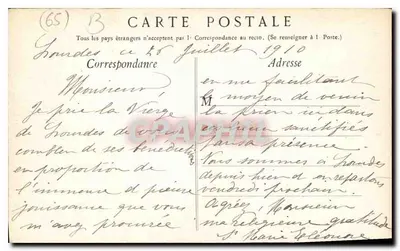 (65) B
CARTE POSTALE
Tous les pays étrangers n'acceptent pas la Correspondance au recto. (Se renseigner à la Poste.)
Lourdes ce 26 Juillet 1910
Correspondance
Monsieur,
Je prie la Vierge
de Lourdes de vous
combler de ses bénédictions
en proportion de
l'immense et pieuse
jouissance que vous
m'avez procurée
Adresse
en me facilitant
M
le moyen de venir
la prier ici dans
sanctifiés
par sa présence
Nous sommes à Lourdes
depuis hier et en repartons
vendredi prochain.
Agréez Monsieur
ma religieuse gratitude
Sr Marie Eléonore